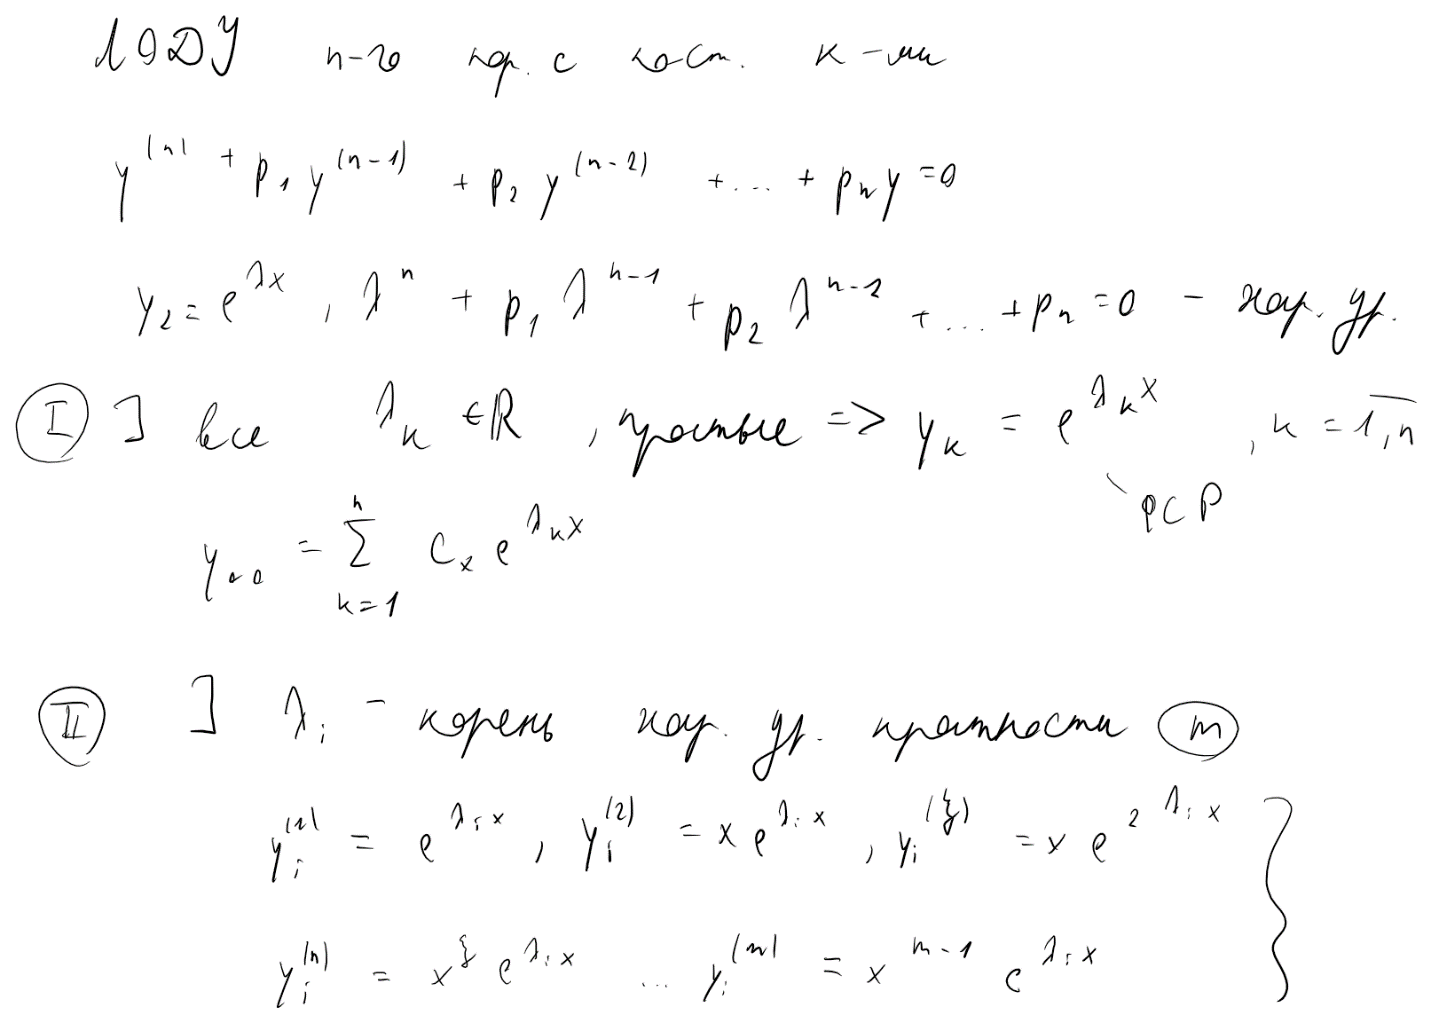 ЛОДУ n-го пор. с пост. к-ми
y^(n) + p₁ y^(n-1) + p₂ y^(n-2) + ... + pₙ y = 0
y₂ = e^λx , λ^n + p₁ λ^n-1 + p₂ λ^n-2 + ... + pₙ = 0 - хар. ур.
I ] все λₖ ∈ ℝ , простые => yₖ = e^λₖx , k = 1,n
ФСР
y₀₀ = Σ k=1 n Cₓ e^λₖx
II ] λᵢ - корень хар. ур. кратности m
yᵢ^(1) = e^λᵢx , yᵢ^(2) = x e^λᵢx , yᵢ^(3) = x e^2 λᵢx
yᵢ^(n) = x^3 e^λᵢx ... yᵢ^(m) = x^m-1 e^λᵢx